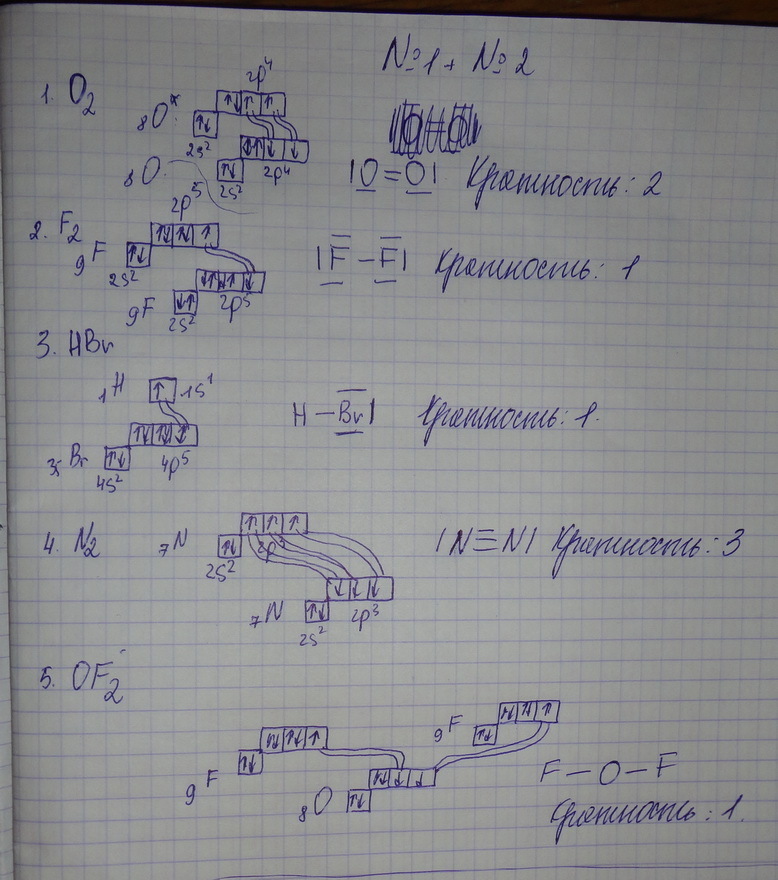 №1 + №2
1. O₂
2p⁴
₈O*
2s²
₈O
2s²
2p⁴
|O=O| Кратность: 2
2. F₂
2p⁵
₉F
2s²
₉F
2s²
2p⁵
|F–F| Кратность: 1
3. HBr
₁H
1s¹
₃₅Br
4s²
4p⁵
H–Br| Кратность: 1.
4. N₂
₇N
2s²
2p³
₇N
2s²
2p³
|N≡N| Кратность: 3
5. OF₂
₉F
₉F
₈O
F–O–F
Кратность: 1.